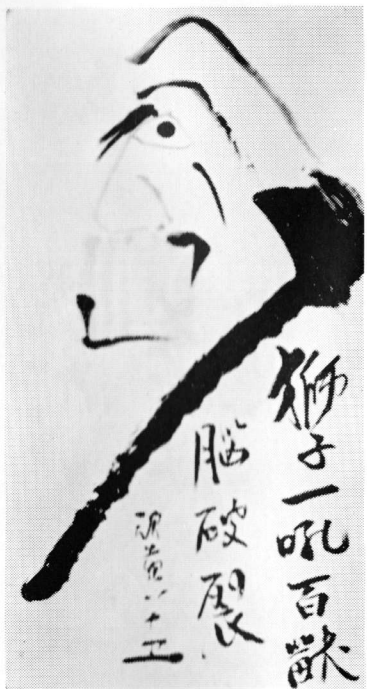 獅子一吼百獣
脳破裂
八十五